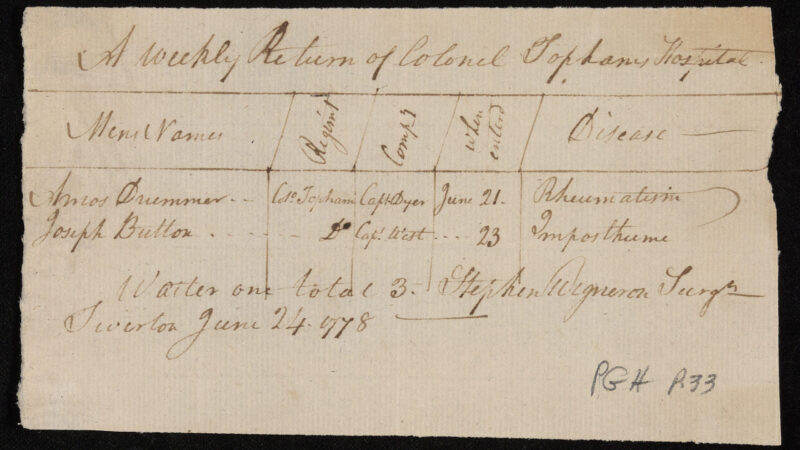 A Weekly Return of Colonel Tophams Hospital
Mens Names Regimt Compy when enterd Disease
Amos Drummer Colo Topham Capt Dyer June 21. Rheumatism
Joseph Button Do Capt West 23 Imposthume
Waiter one total 3. Stephen Wigneron Surgn
Tiverton June 24. 1778
PGH P.33